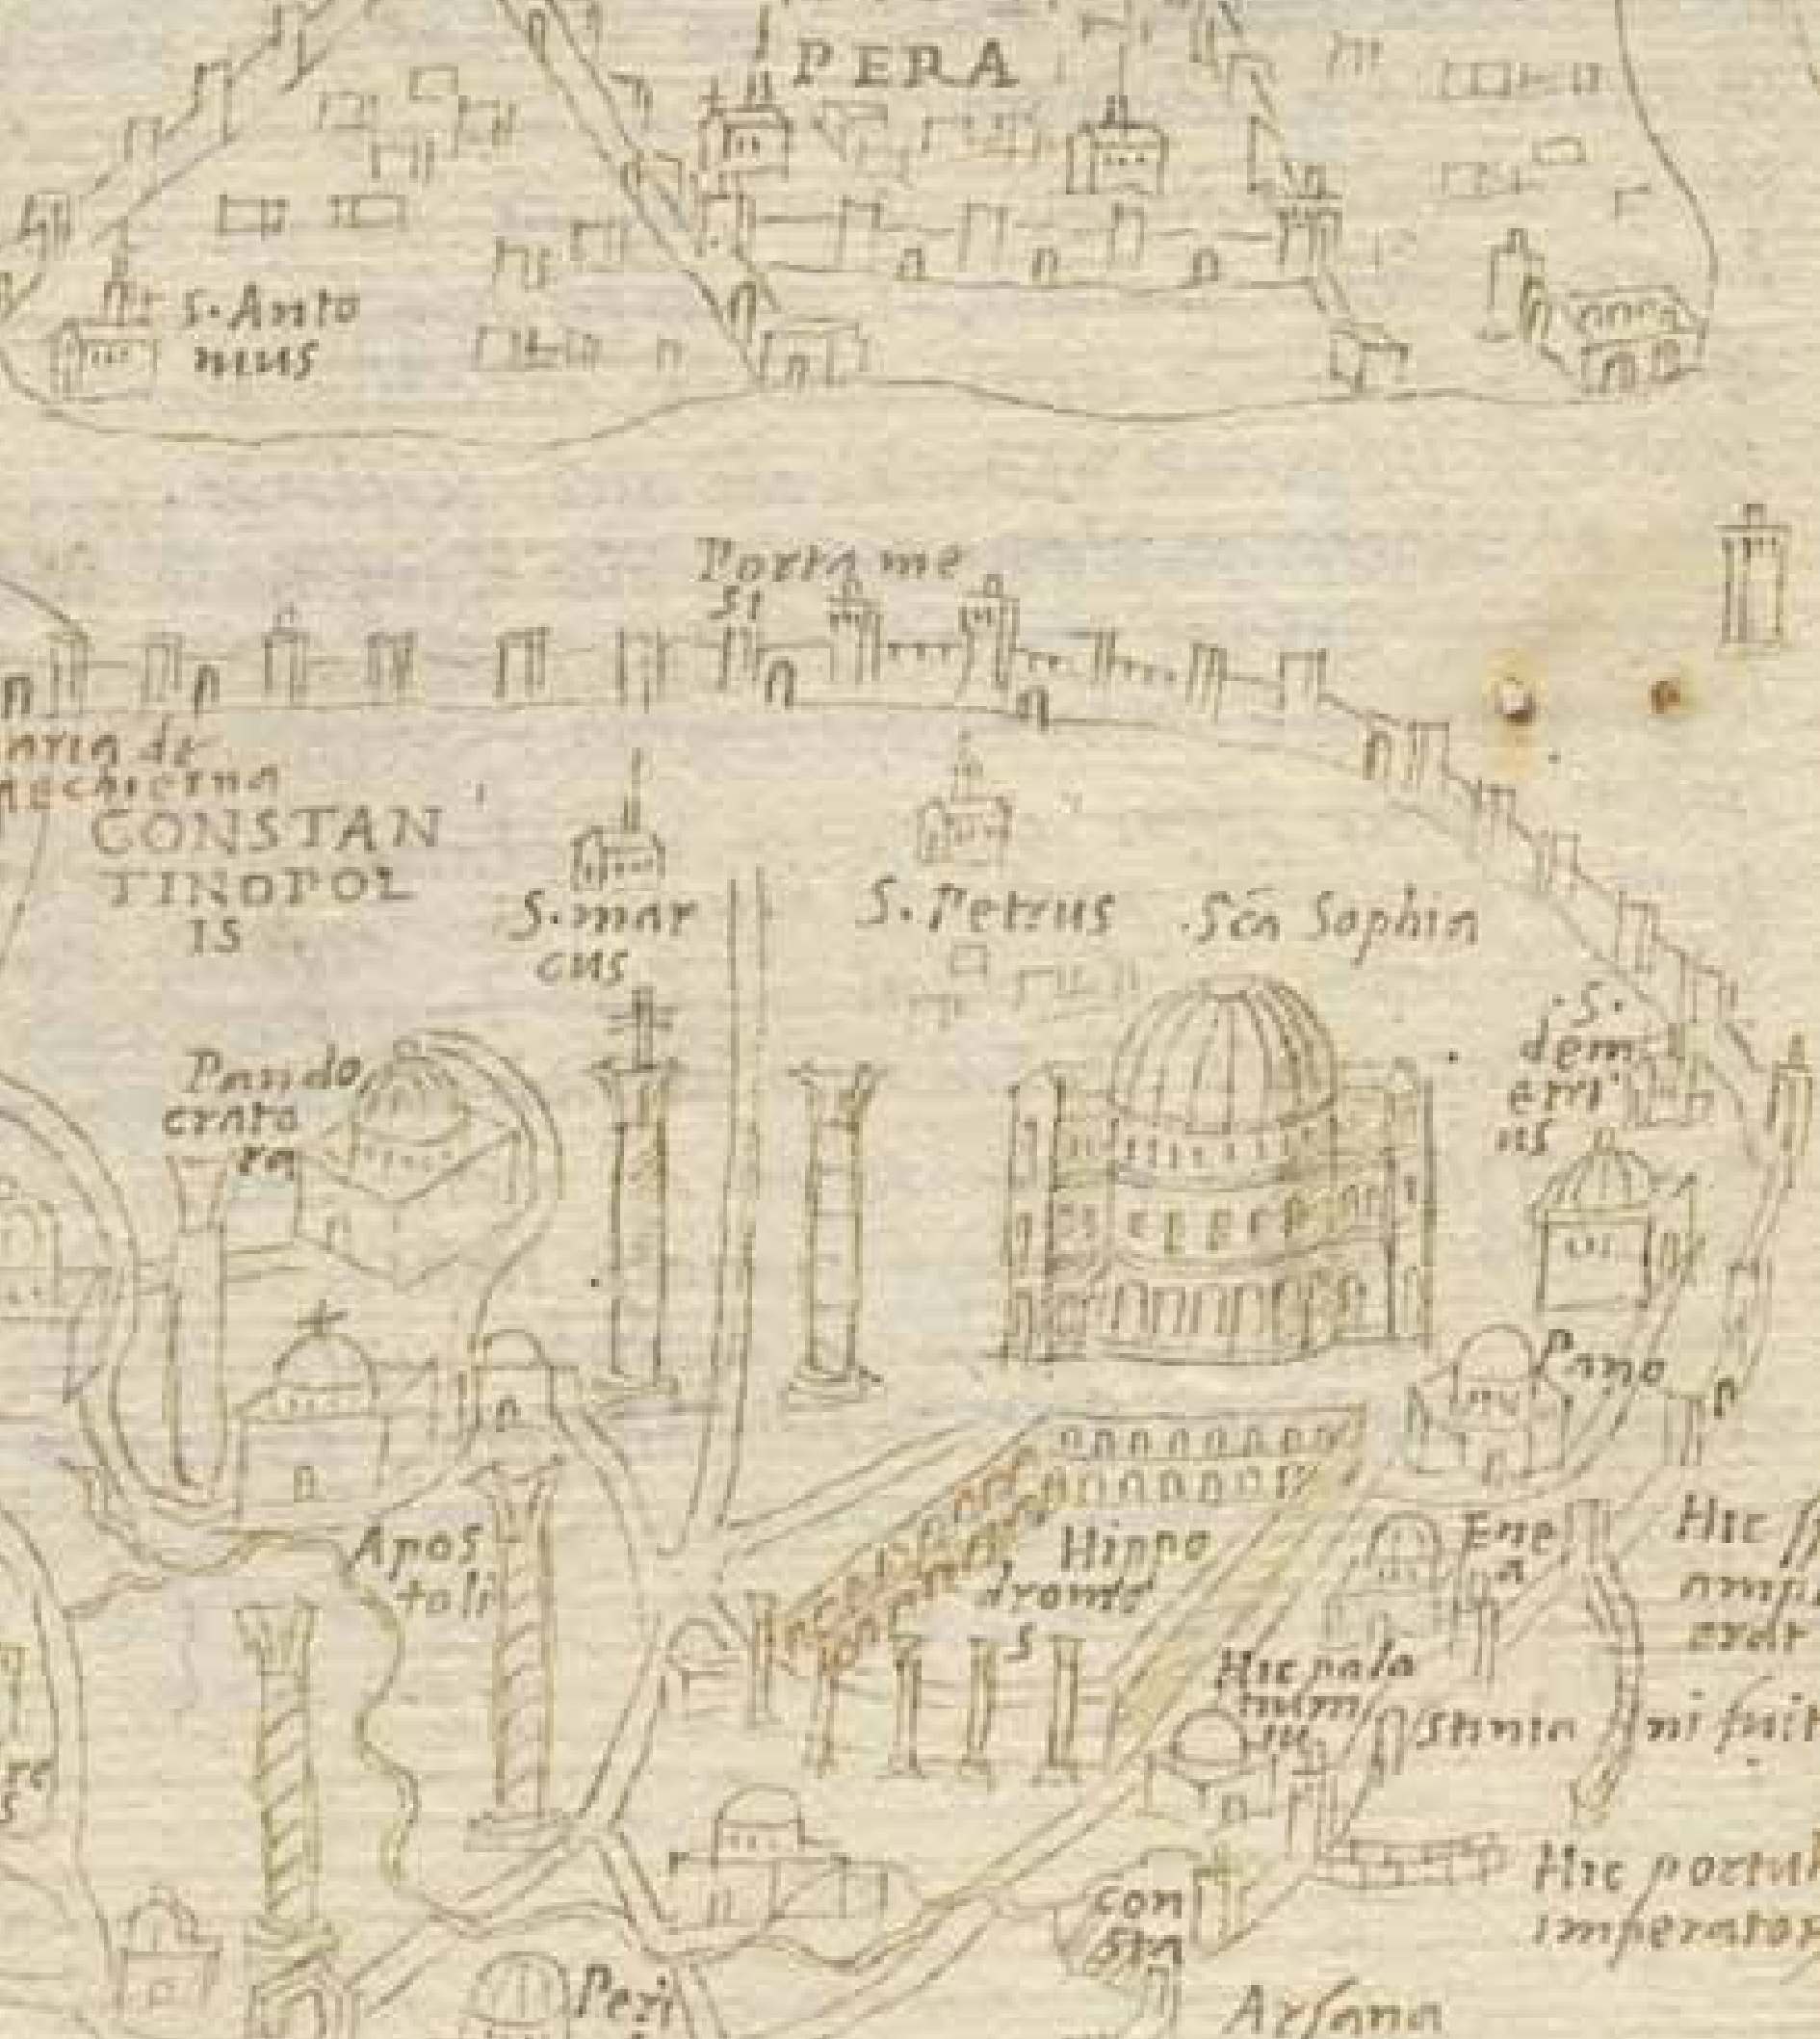 PERA
S. Anto
nius
Porta me
si
aria de
CONSTAN
TINOPOL
IS
S. mar
cus
S. Petrus
. Sca Sophia
. S .
dem
etri
us
Pando
crato
ra
Pano
Apos
toli
Hippo
dromu
s
Ene
a
Hic
amp
erat
Hic pala
num
iu stinia ni fuit
Hic portu
imperator
con
sta
Peri
Arsana